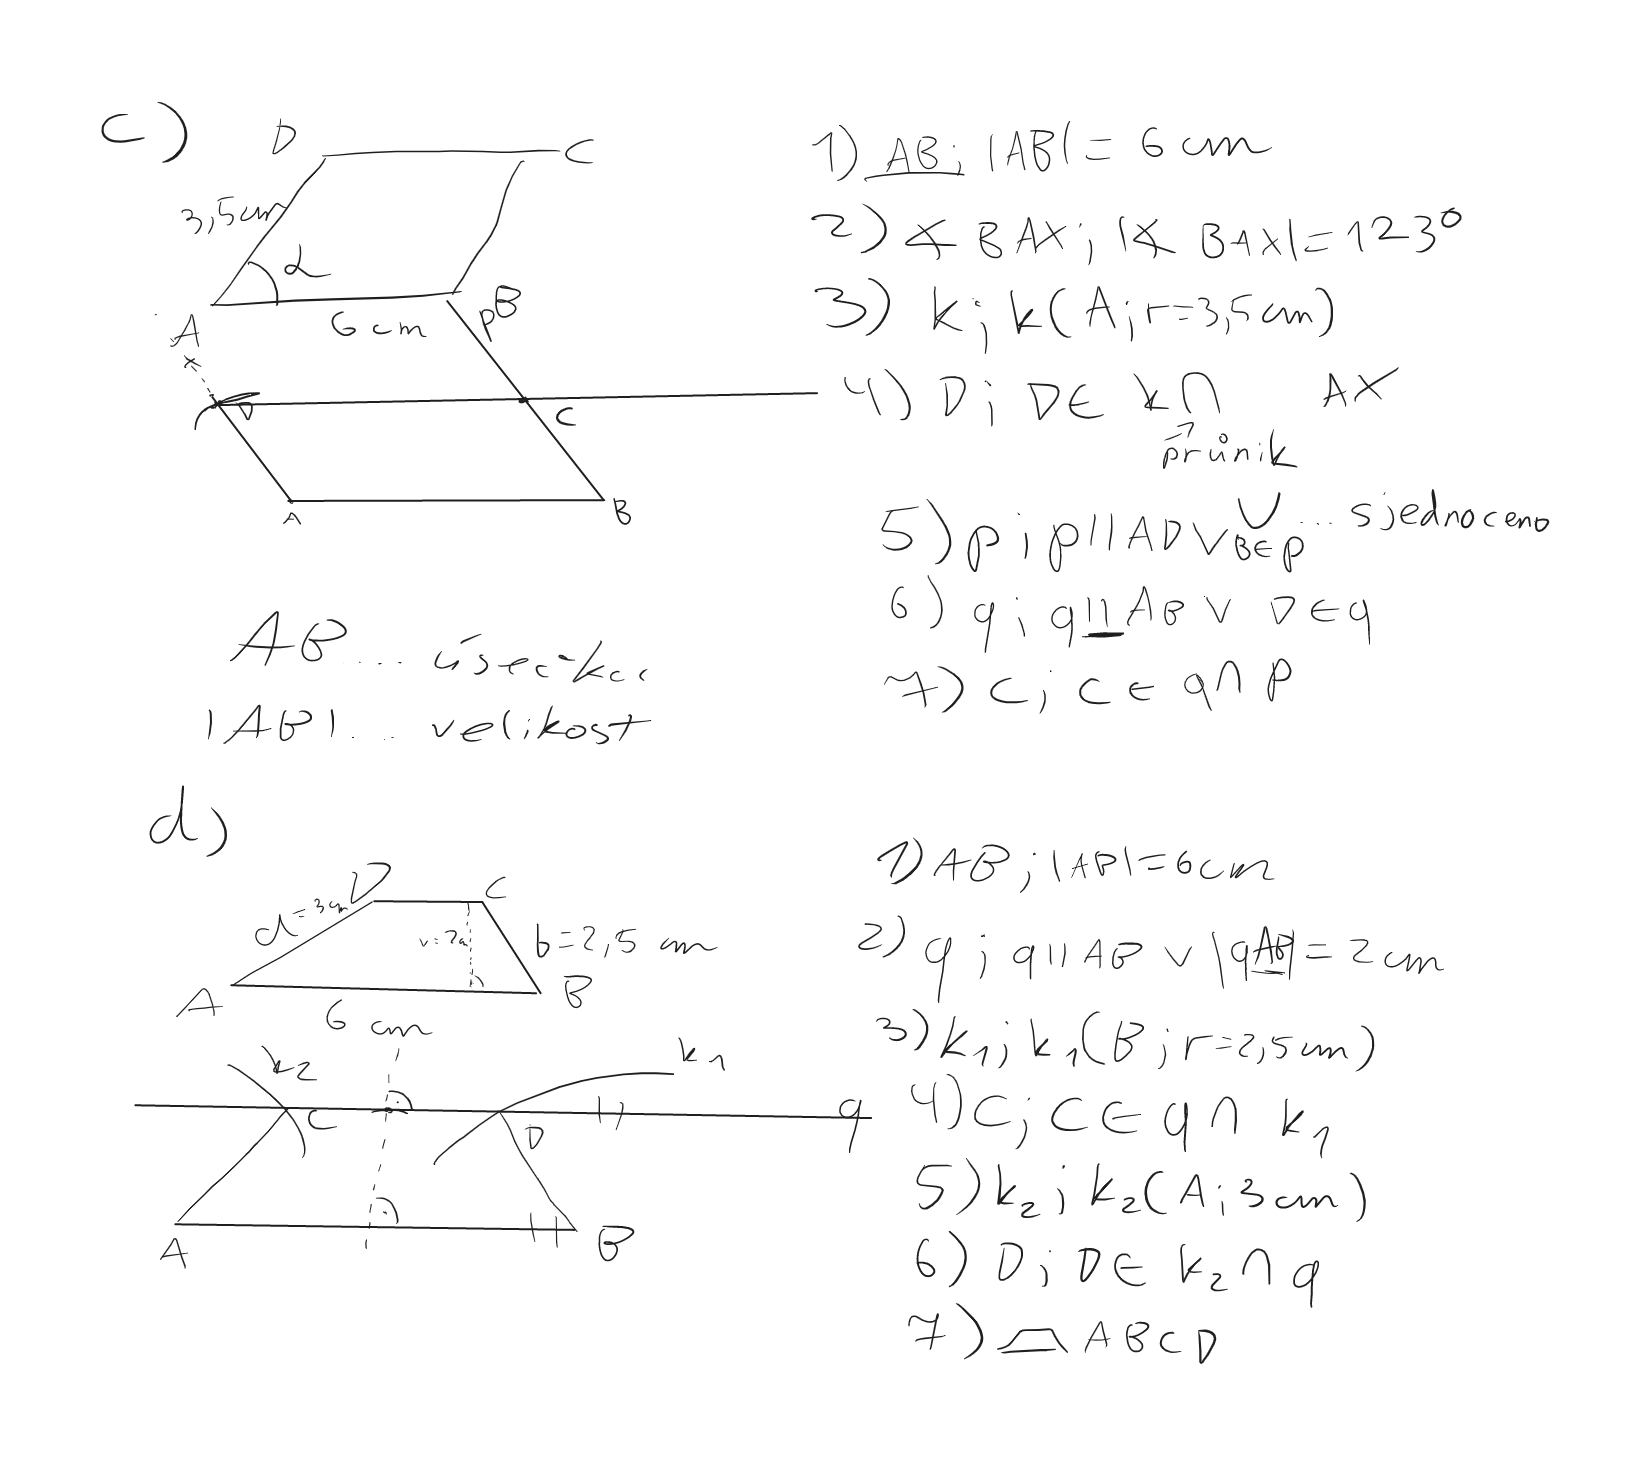 c)
D C
3,5cm α
A 6 cm B
1) AB; |AB| = 6 cm
2) ∢ BAX; |∢ BAX| = 123°
3) k; k(A; r=3,5cm)
4) D; D∈ k∩ AX
průnik
5) p; p||AD ∨ B∈p ∪ ... sjednoceno
6) q; q||AB ∨ D∈q
7) C; C∈ q∩p
x p
D C
A B
AB ... úsečka
|AB| ... velikost
d)
D C
d=3cm v=2cm b=2,5 cm
A 6 cm B
1) AB; |AB|=6cm
2) q; q||AB ∨ |qAB| = 2cm
3) k₁; k₁(B; r=2,5cm)
4) C; C∈ q∩ k₁
5) k₂; k₂(A; 3cm)
6) D; D∈ k₂∩q
7) ⏢ ABCD
k₂ k₁
C D q
A B